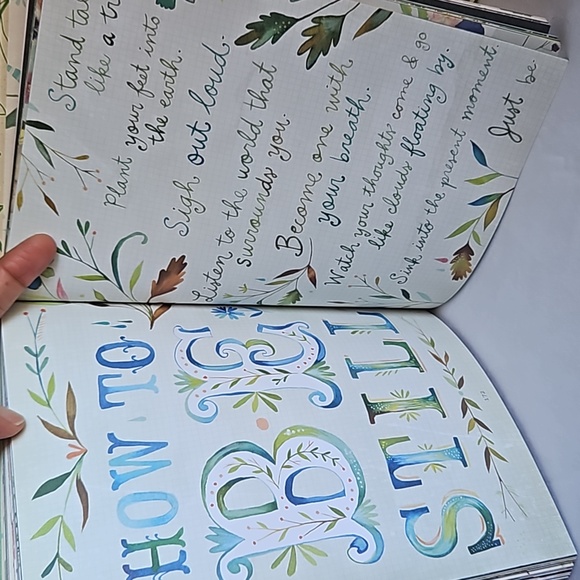 HOW TO
BE
STILL
Stand
like a
Plant your feet into
the earth.
Sigh out loud.
Listen to the world that
surrounds you.
Become one with
your breath.
Watch your thoughts come & go
like clouds floating by.
Sink into the present moment.
Just be